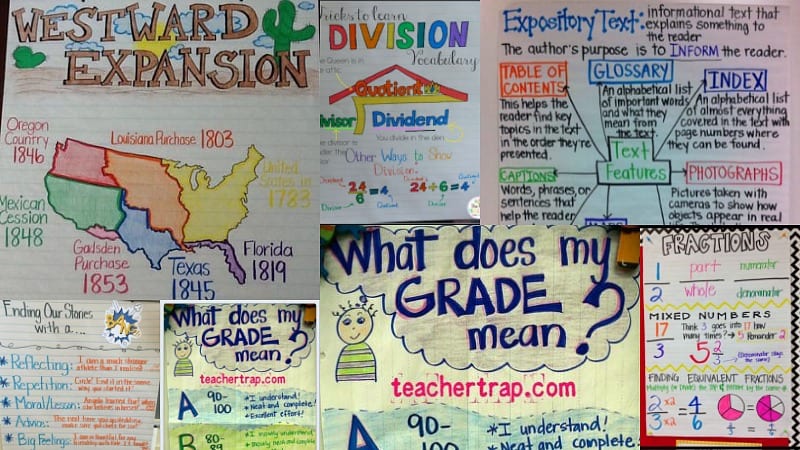 WESTWARD
EXPANSION
Oregon
Country
1846
Louisiana Purchase 1803
United
States in
1783
Mexican
Cession
1848
Gadsden
Purchase
1853
Texas
1845
Florida
1819
Tricks to learn
DIVISION
Vocabulary
Queen is in
Quotient
Divisor
Dividend
You divide in the den
Other Ways to Show
Division
24
6
= 4
24 ÷ 6 = 4
Expository Text:
informational text that
explains something to
the reader
The author's purpose is to INFORM the reader.
TABLE OF
CONTENTS
This helps the
reader find key
topics in the text
in the order they're
presented.
GLOSSARY
An alphabetical list
of important words
and what they
mean from
the text.
INDEX
An alphabetical list
of almost everything
covered in the text with
page numbers where
they can be found.
Text
Features
CAPTIONS
Words, phrases, or
sentences that
help the reader
PHOTOGRAPHS
Pictures taken with
cameras to show how
objects appear in real
Ending Our Stories
with a....
* Reflecting:
* Repetition:
* Moral/Lesson:
* Advice:
* Big Feelings:
What does my
GRADE
mean?
teachertrap.com
A
90-
100
* I understand!
* Neat and complete!
* Excellent effort!
B
80-
89
What does my
GRADE
mean?
teachertrap.com
A
90-
100
* I understand!
* Neat and complete!
FRACTIONS
1 part numerator
2 whole denominator
MIXED NUMBERS
17
3
Think 3 goes into 17 how
many times? → 5 Remainder 2
5 2/3
(Denominator stays
the same)
FINDING EQUIVALENT FRACTIONS
2 x2
3 x2
= 4
6